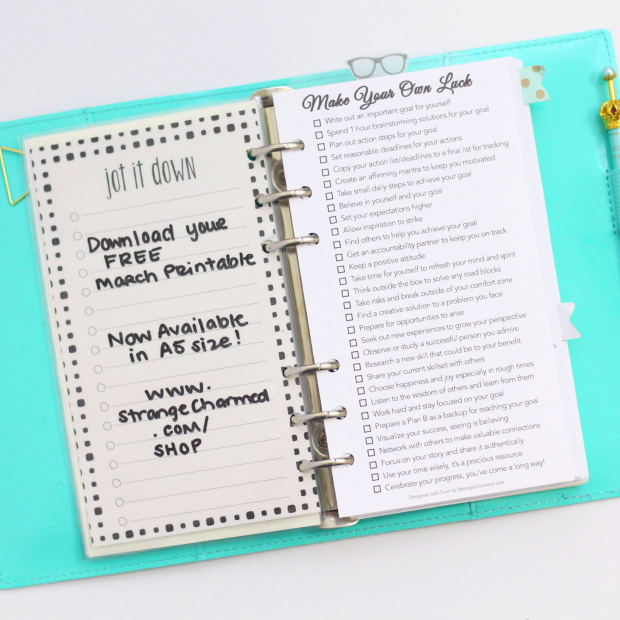 jot it down
Download your
FREE
March Printable
Now Available
in A5 size!
www.
StrangeCharmed
.com/
SHOP
Make Your Own Luck
Write out an important goal for yourself
Spend 1 hour brainstorming solutions for your goal
Plan out action steps for your goal
Set reasonable deadlines for your actions
Copy your action list/deadlines to a final list for tracking
Create an affirming mantra to keep you motivated
Take small daily steps to achieve your goal
Believe in yourself and your goal
Set your expectations higher
Allow inspiration to strike
Find others to help you achieve your goal
Get an accountability partner to keep you on track
Keep a positive attitude
Take time for yourself to refresh your mind and spirit
Think outside the box to solve any road blocks
Take risks and break outside of your comfort zone
Find a creative solution to a problem you face
Prepare for opportunities to arise
Seek out new experiences to grow your perspective
Observe or study a successful person you admire
Research a new skill that could be to your benefit
Share your current skillset with others
Choose happiness and joy especially in rough times
Listen to the wisdom of others and learn from them
Work hard and stay focused on your goal
Prepare a Plan B as a backup for reaching your goal
Visualize your success, seeing is believing
Network with others to make valuable connections
Focus on your story and share it authentically
Use your time wisely, it's a precious resource
Celebrate your progress, you've come a long way!
Designed with Love by StrangeCharmed.com